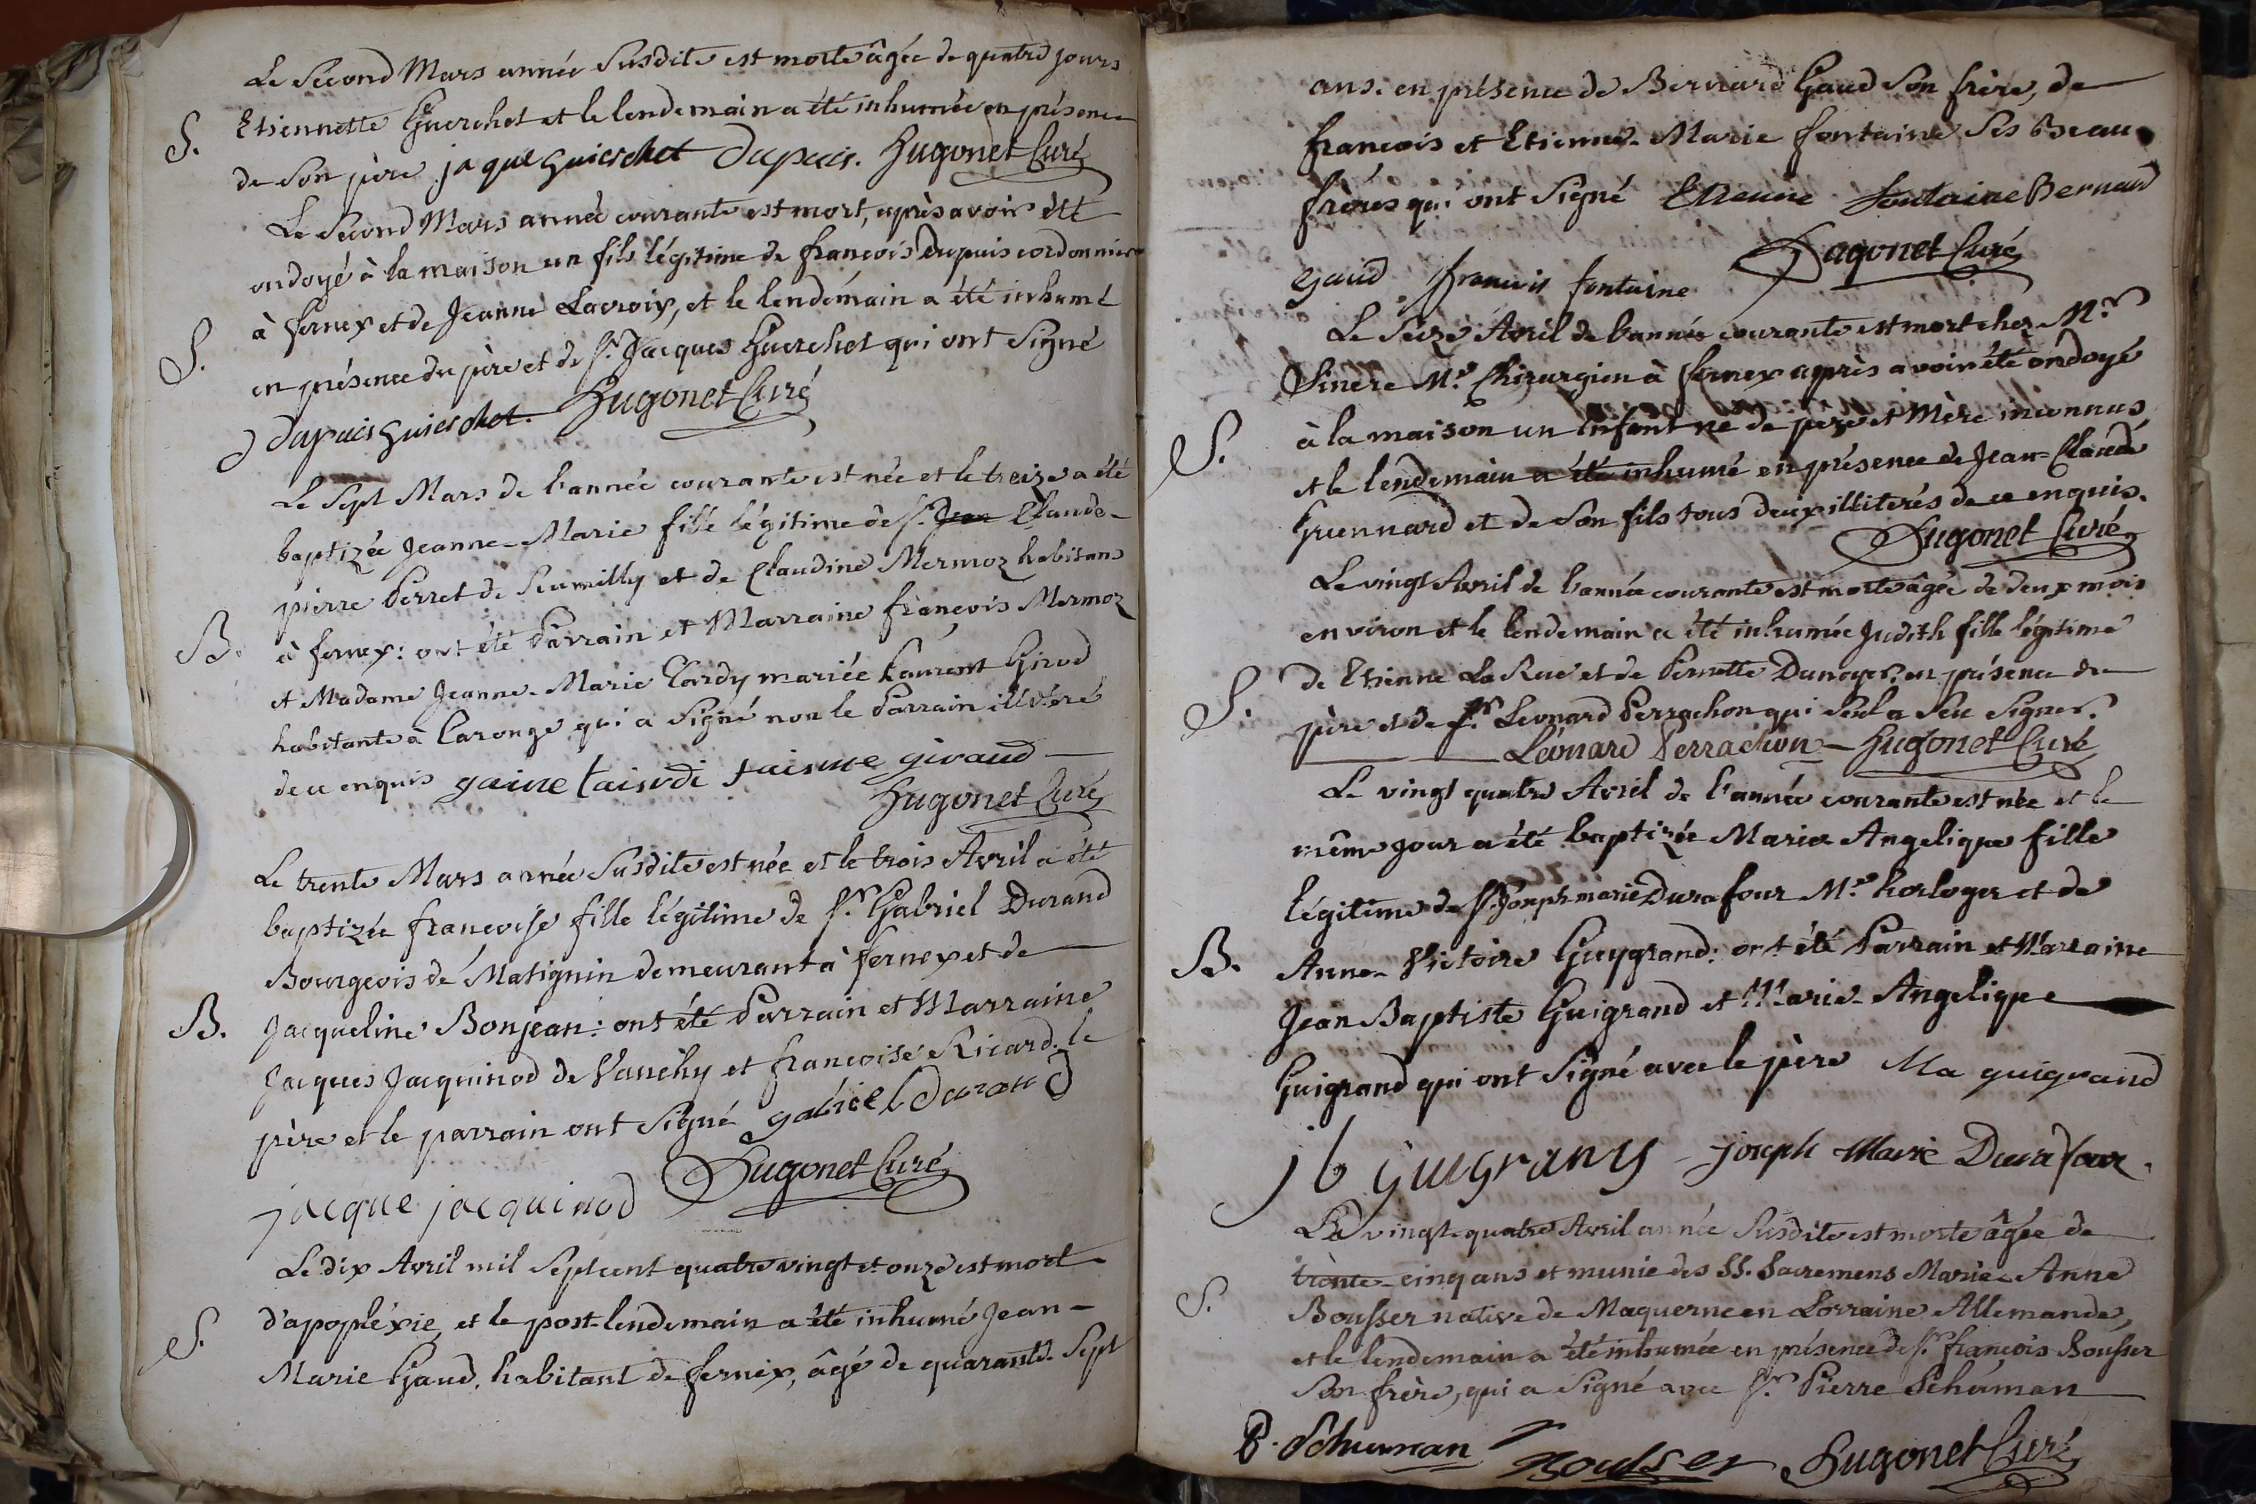 Le Second Mars année Susdite est morte âgée de quatre jours
S. Etiennette Guerchet et le lendemain a été inhumée en présence
de Son père jaque guierchet Dupuis. Hugonet Curé
Le Second Mars année courante est mort, après avoir été
ondoyé à la maison un fils légitime de françois Dupuis cordonnier
à fernex et de Jeanne Lacroix, et le lendemain a été inhumé
S. en présence du père et de Sr. Jacques Guerchet qui ont Signé
Dupuis guierchet. Hugonet Curé
Le Sept Mars de l'année courante est née et le treize a été
baptizée Jeanne-Marie fille légitime de Sr. Jean Claude-
pierre Perret de Rumilly et de Claudine Mermoz habitans
B. à fernex: ont été Parrain et Marraine françois Mermoz
et Madame Jeanne-Marie Tardy mariée Laurent Girod
habitante à Caronge qui a Signé non le Parrain illitéré
de ce enquis gaine tairdi faisme giraud
Hugonet Curé
Le trente Mars année Susdite est née et le trois Avril a été
baptizée françoise fille légitime de Sr. Gabriel Durand
Bourgeois de Matignin demeurant à fernex et de
B. Jacqueline Bonjean: ont été Parrain et Marraine
Jacques Jacquinod de Vauchy et françoise Ricard. le
père et le parrain ont Signé gabriel Durand
jacque jacquinod Hugonet Curé
Le dix Avril mil Sept cent quatre vingt et onze est mort
S. d'apopléxie et le post-lendemain a été inhumé Jean-
Marie Gaud, habitant de fernex, âgé de quarante Sept
ans: en présence de Bernard Gaud Son frère, de
françois et Etienne-Marie fontaine Ses beau
frères qui ont Signé Etienne fontaine Bernard
gaud françois fontaine Hugonet Curé
Le Seize Avril de l'année courante est mort chez Mr.
Sinere Me. Chirurgien à fernex après avoir été ondoyé
S. à la maison un Enfant né de père et Mère inconnus
et le lendemain a été inhumé en présence de Jean-Claude
Guennard et de Son fils tous deux illiterés de ce enquis.
Hugonet Curé
Le vingt Avril de l'année courante est morte âgée de deux mois
environ et le lendemain a été inhumée Judith fille légitime
S. de Etienne La Rue et de Pernette Dunoyer. en présence du
père et de Sr. Leonard Perrachon qui Seul a Seu Signer.
Léonard Perrachon - Hugonet Curé
Le vingt quatre Avril de l'année courante est née et le
même jour a été baptizée Marie Angelique fille
légitime de Sr. Joseph marie Durafour Me. horloger et de
B. Anne-Victoire Guygrand: ont été Parrain et Marraine
Jean Baptiste Guigrand et Marie-Angelique
Guigrand qui ont Signé avec le père Ma guigrand
jb guigrand joseph Marie Durafour.
Le vingt-quatre Avril année Susdite est morte âgée de
trente-cinq ans et munie des SS. Sacremens Marie-Anne
S. Bousser native de Maquerne en Lorraine Allemande,
et le lendemain a été inhumée en présence de Sr. françois Bousser
Son frère, qui a Signé avec Sr. Pierre Schúman
P. Schuman Bousser Hugonet Curé